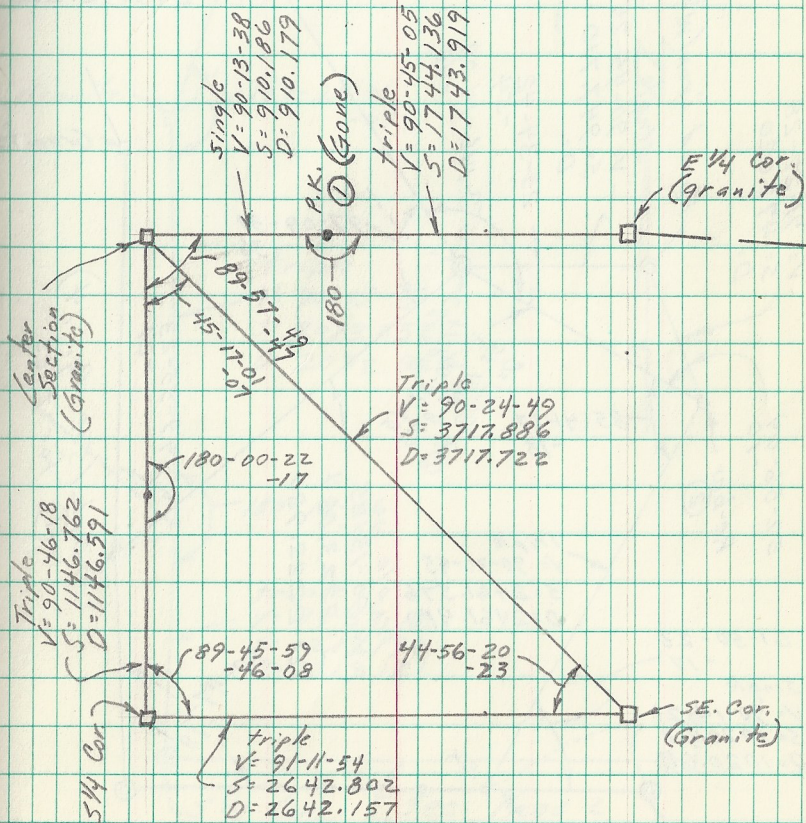 Single
V= 90-13-38
S= 910.186
D= 910.179
P.K.
① (Gone)
triple
V= 90-45-05
S= 1744.136
D= 1743.919
E 1/4 Cor.
(granite)
180
89-57-49
-47
45-17-01
-07
Center
Section
(Granite)
Triple
V= 90-24-49
S= 3717.886
D= 3717.722
180-00-22
-17
Triple
V= 90-46-18
S= 1146.762
D= 1146.591
89-45-59
-46-08
44-56-20
-23
S 1/4 Cor.
SE. Cor.
(Granite)
triple
V= 91-11-54
S= 2642.802
D= 2642.157